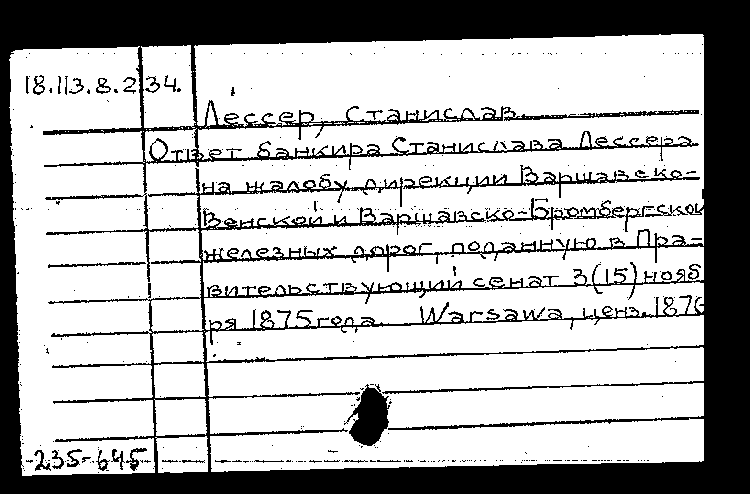 18.113.8.234.
Лессер, Станислав.
Ответ банкира Станислава Лессера
на жалобу дирекции Варшавско-
Венской и Варшавско-Бромбергской
железных дорог, поданную в Пра-
вительствующий сенат 3(15) нояб
ря 1875 года. Warsawa, ценз. 1876
235-645